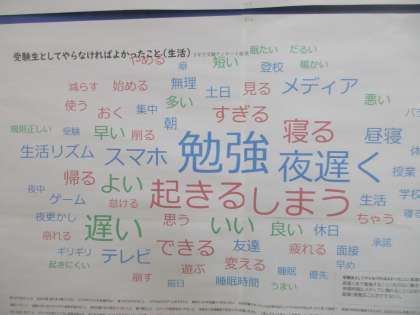 受験生としてやらなければよかったこと(生活)
やめる 短い 眠たい だるい
癖 登校 暖かい
減らす 始める 無理 土日 見る メディア
使う おく 集中 多い すぎる 悪い
規則正しい 受験 早い 削る 朝 寝る 昼寝
生活リズム スマホ 勉強 夜遅く
帰る よい 起きる しまう 授業
夜中 ゲーム 怠ける 生活 学校
夜更かし 遅い 思う いい 良い 休日 ちゃう
崩れる できる 友達 疲れる 面接 承諾
ギリギリ テレビ 遊ぶ 変える 睡眠 優先 早め
起きにくい 崩す 前日 睡眠時間 うまい